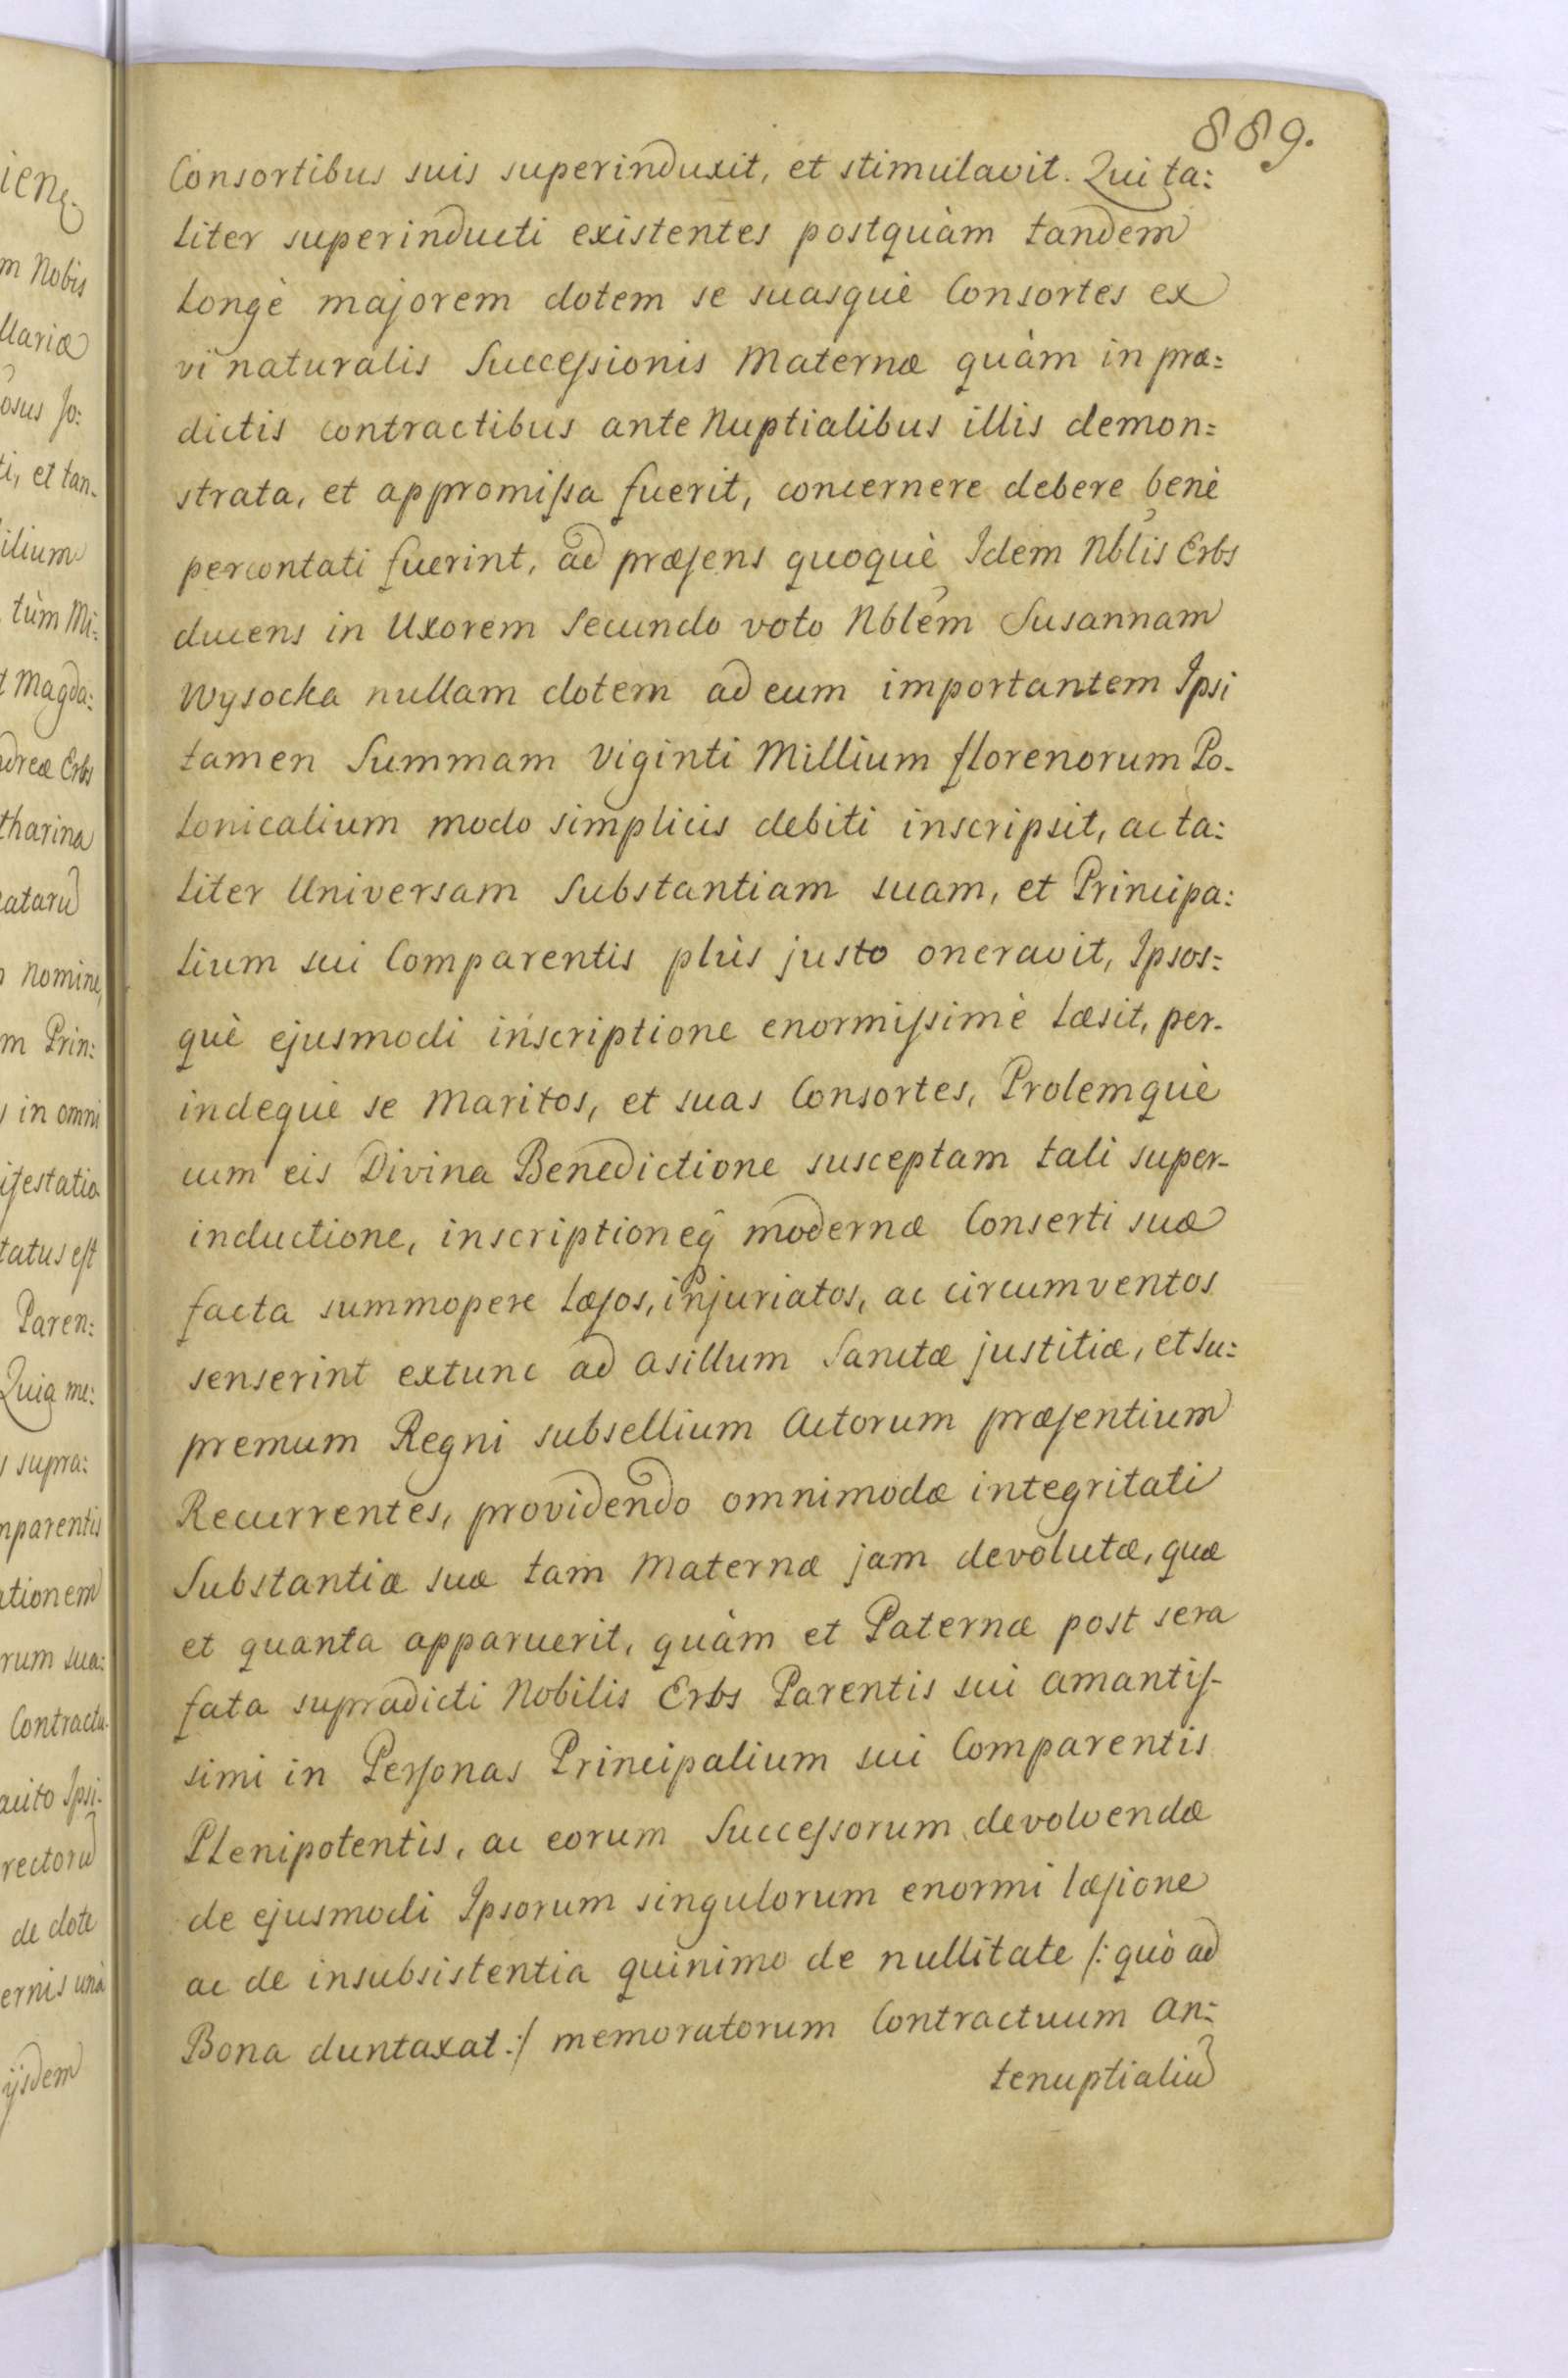 889.
Consortibus suis superinduxit, et stimulavit. Qui ta:
liter superinducti existentes postquàm tandem
longè majorem dotem se suasquè Consortes ex
vi naturalis Succeſsionis Maternæ quàm in præ:
dictis contractibus ante Nuptialibus illis demon:
strata, et appromiſsa fuerit, concernere debere benè
percontati fuerint, ad præſens quoquè Idem Nblis Erbs
ducens in Uxorem Secundo voto Nblem Susannam
Wysocka nullam dotem ad eum importantem Ipsi
tamen Summam Viginti Millium florenorum Po-
lonicalium modo simplicis debiti inscripsit, ac ta:
liter Universam Substantiam suam, et Principa:
lium sui Comparentis plùs justo oneravit, Ipsos:
què ejusmodi inscriptione enormiſsimè læsit, per-
indequè se Maritos, et suas Consortes, Prolemquè
cum eis Divina Benedictione susceptam tali super-
inductione, inscriptioneq̃ modernæ Conserti suæ
facta summopere læſos, injuriatos, ac circumventos
senserint extunc ad asillum Sanctæ justitiæ, et Su:
premum Regni subsellium Actorum præſentium
Recurrentes, providendo omnimodæ integritati
Substantiæ suæ tam Maternæ jam devolutæ, quæ
et quanta apparuerit, quàm et Paternæ post sera
fata supradicti Nobilis Erbs Parentis sui amantiſ-
simi in Perſonas Principalium sui Comparentis
Plenipotentis, ac eorum Succeſsorum devolvendæ
de ejusmodi Ipsorum singulorum enormi læſione
ac de insubsistentia quinimo de nullitate /: quò ad
Bona duntaxat :/ memoratorum Contractuum an:
tenuptialiũ
m Nobis
ti, et tan-
tùm Mi:
t Magda:
dreæ Erbs
tharina
nomine,
m Prin:
in omni
tatus eſt
Paren:
Quia me:
supra:
mparentis
ationem
rum sua:
Contractu-
de dote
ijsdem